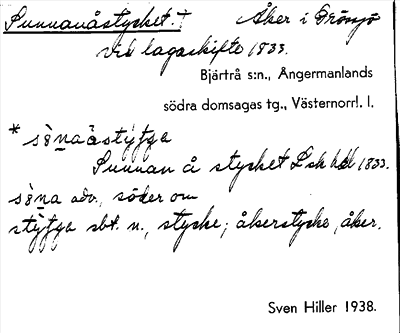 Sunnanåstycket.† Åker i Grönsjö
vid lagaskifte 1833.
Bjärtrå s:n., Ångermanlands
södra domsagas tg., Västernorrl. l.
* sènaåstýʃʃa
Sunnan å stycket Lsk hdl 1833.
sèna adv., söder om
stýʃʃa sbt. n., stycke; åkerstycke, åker.
Sven Hiller 1938.